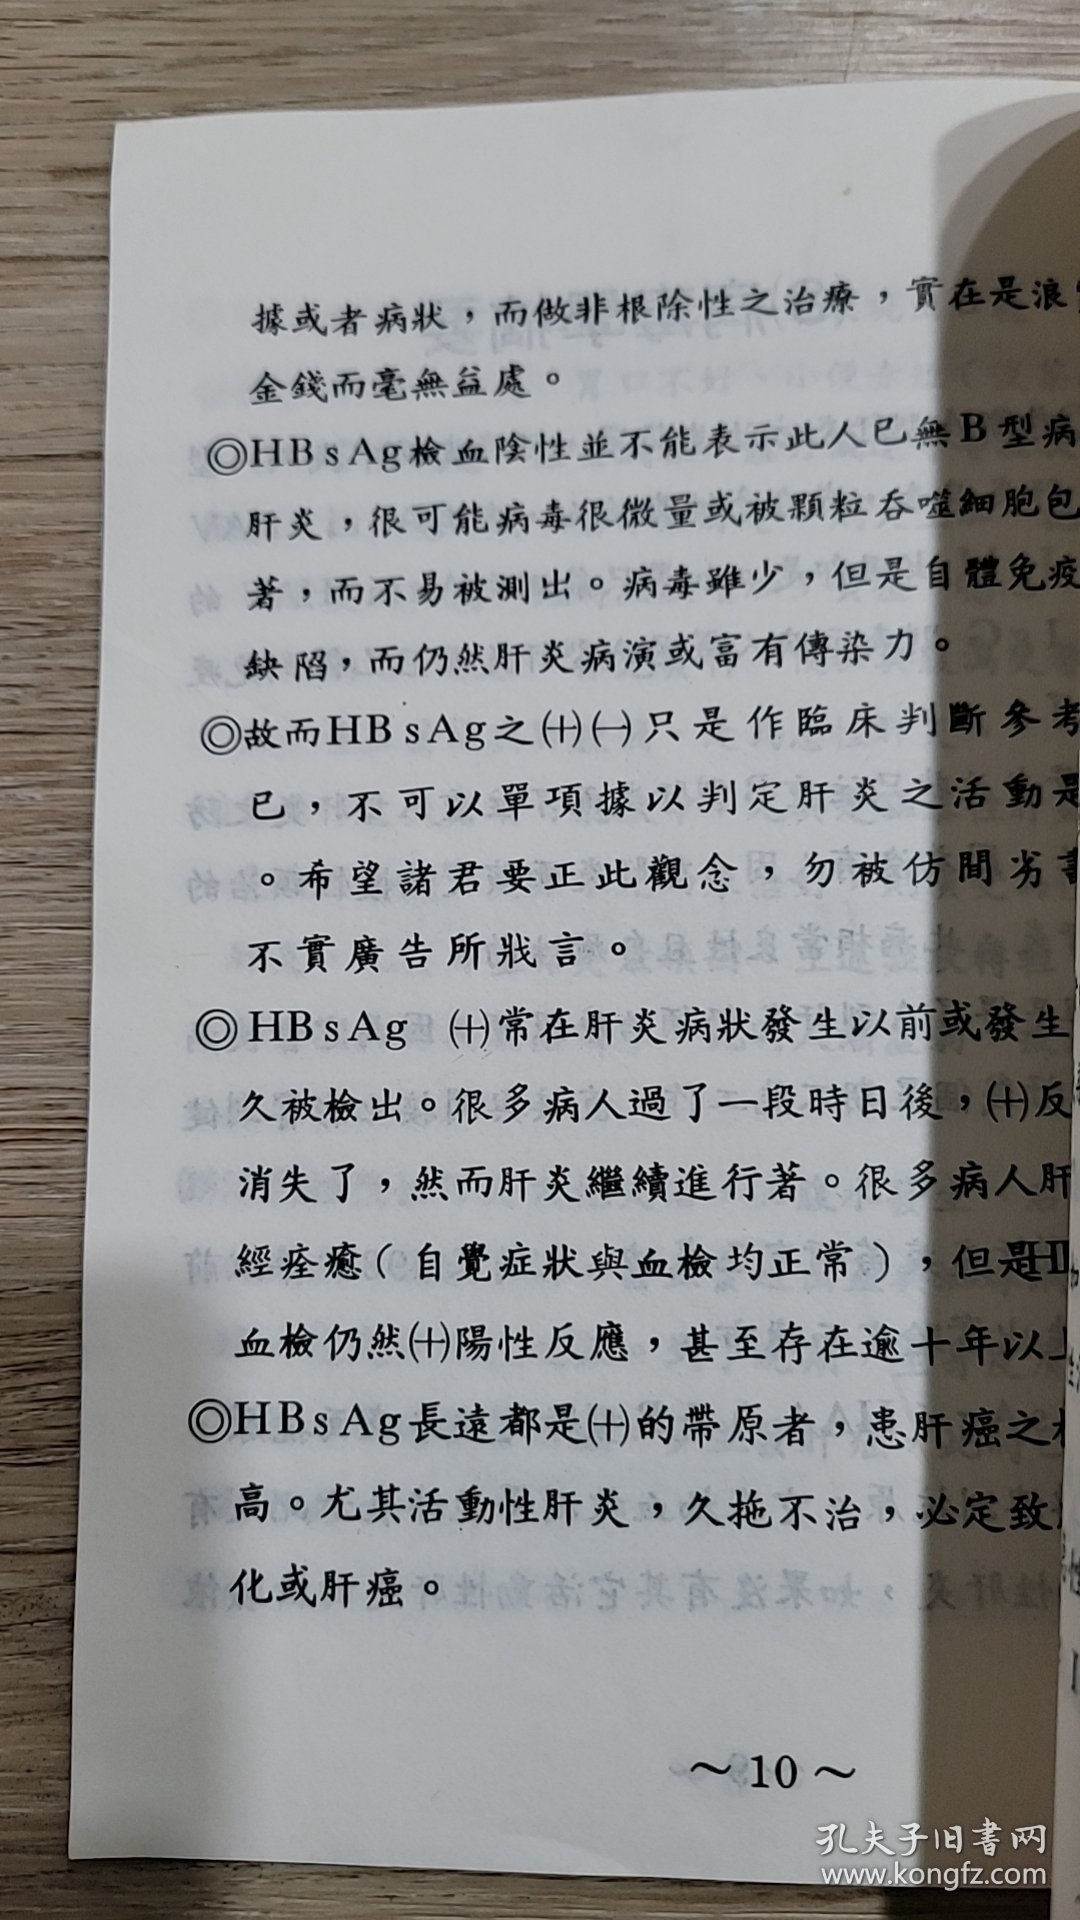 據或者病狀，而做非根除性之治療，實在是浪
金錢而毫無益處。
◎HBsAg檢血陰性並不能表示此人已無B型病
肝炎，很可能病毒很微量或被顆粒吞噬細胞包
著，而不易被測出。病毒雖少，但是自體免疫
缺陷，而仍然肝炎病演或富有傳染力。
◎故而HBsAg之(+)(-)只是作臨床判斷參考
已，不可以單項據以判定肝炎之活動是
。希望諸君要正此觀念，勿被仿間劣
不實廣告所戕言。
◎HBsAg (+)常在肝炎病狀發生以前或發生
久被檢出。很多病人過了一段時日後，(+)反
消失了，然而肝炎繼續進行著。很多病人肝
經痊癒（自覺症狀與血檢均正常），但是H
血檢仍然(+)陽性反應，甚至存在逾十年以上
◎HBsAg長遠都是(+)的帶原者，患肝癌之
高。尤其活動性肝炎，久拖不治，必定致
化或肝癌。
～10～
孔夫子旧書网
www.kongfz.com